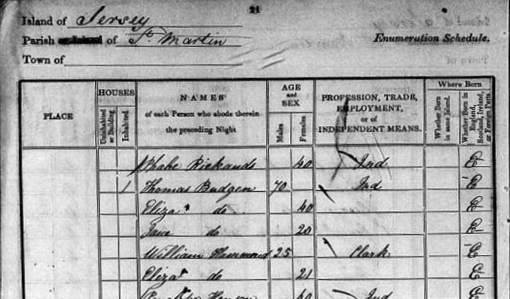 21
Island of Jersey
Parish or Island of St Martin
Enumeration Schedule.
Town of
PLACE
HOUSES
Uninhabited or Building
Inhabited
NAMES of each Person who abode therein the preceding Night
AGE and SEX
Males
Females
PROFESSION, TRADE, EMPLOYMENT, or of INDEPENDENT MEANS.
Where Born
Whether Born in same Island.
Whether Born in England, Scotland, Ireland, or Foreign Parts.
Phabe Rickards 40 Ind E
1 Thomas Budgen 70 Ind E
Eliza do 40 E
Jane do 20 E
William 25 Clark E
Eliza do 21 E
40 Ind E